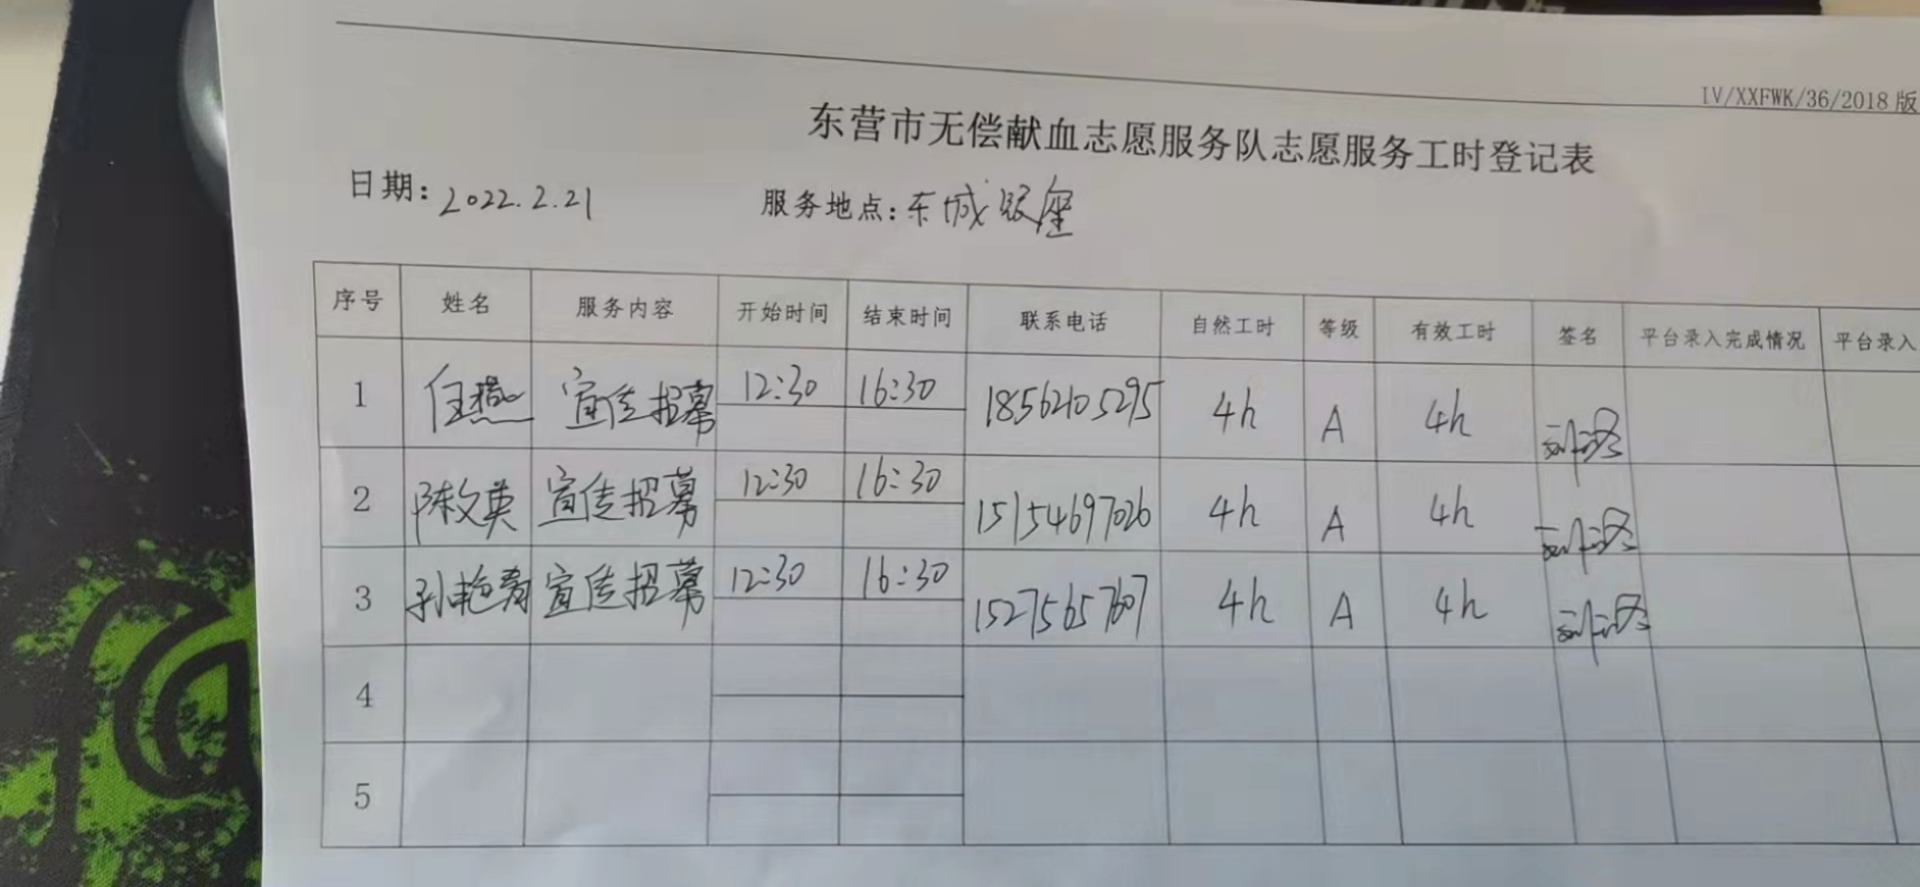 IV/XXFWK/36/2018 版
东营市无偿献血志愿服务队志愿服务工时登记表
日期: 2022.2.21 服务地点: 东城银座
序号 姓名 服务内容 开始时间 结束时间 联系电话 自然工时 等级 有效工时 签名 平台录入完成情况 平台录入
1 任燕 宣传招募 12:30 16:30 18562105295 4h A 4h
2 陈文英 宣传招募 12:30 16:30 15154697026 4h A 4h
3 孙艳春 宣传招募 12:30 16:30 15275657607 4h A 4h
4
5